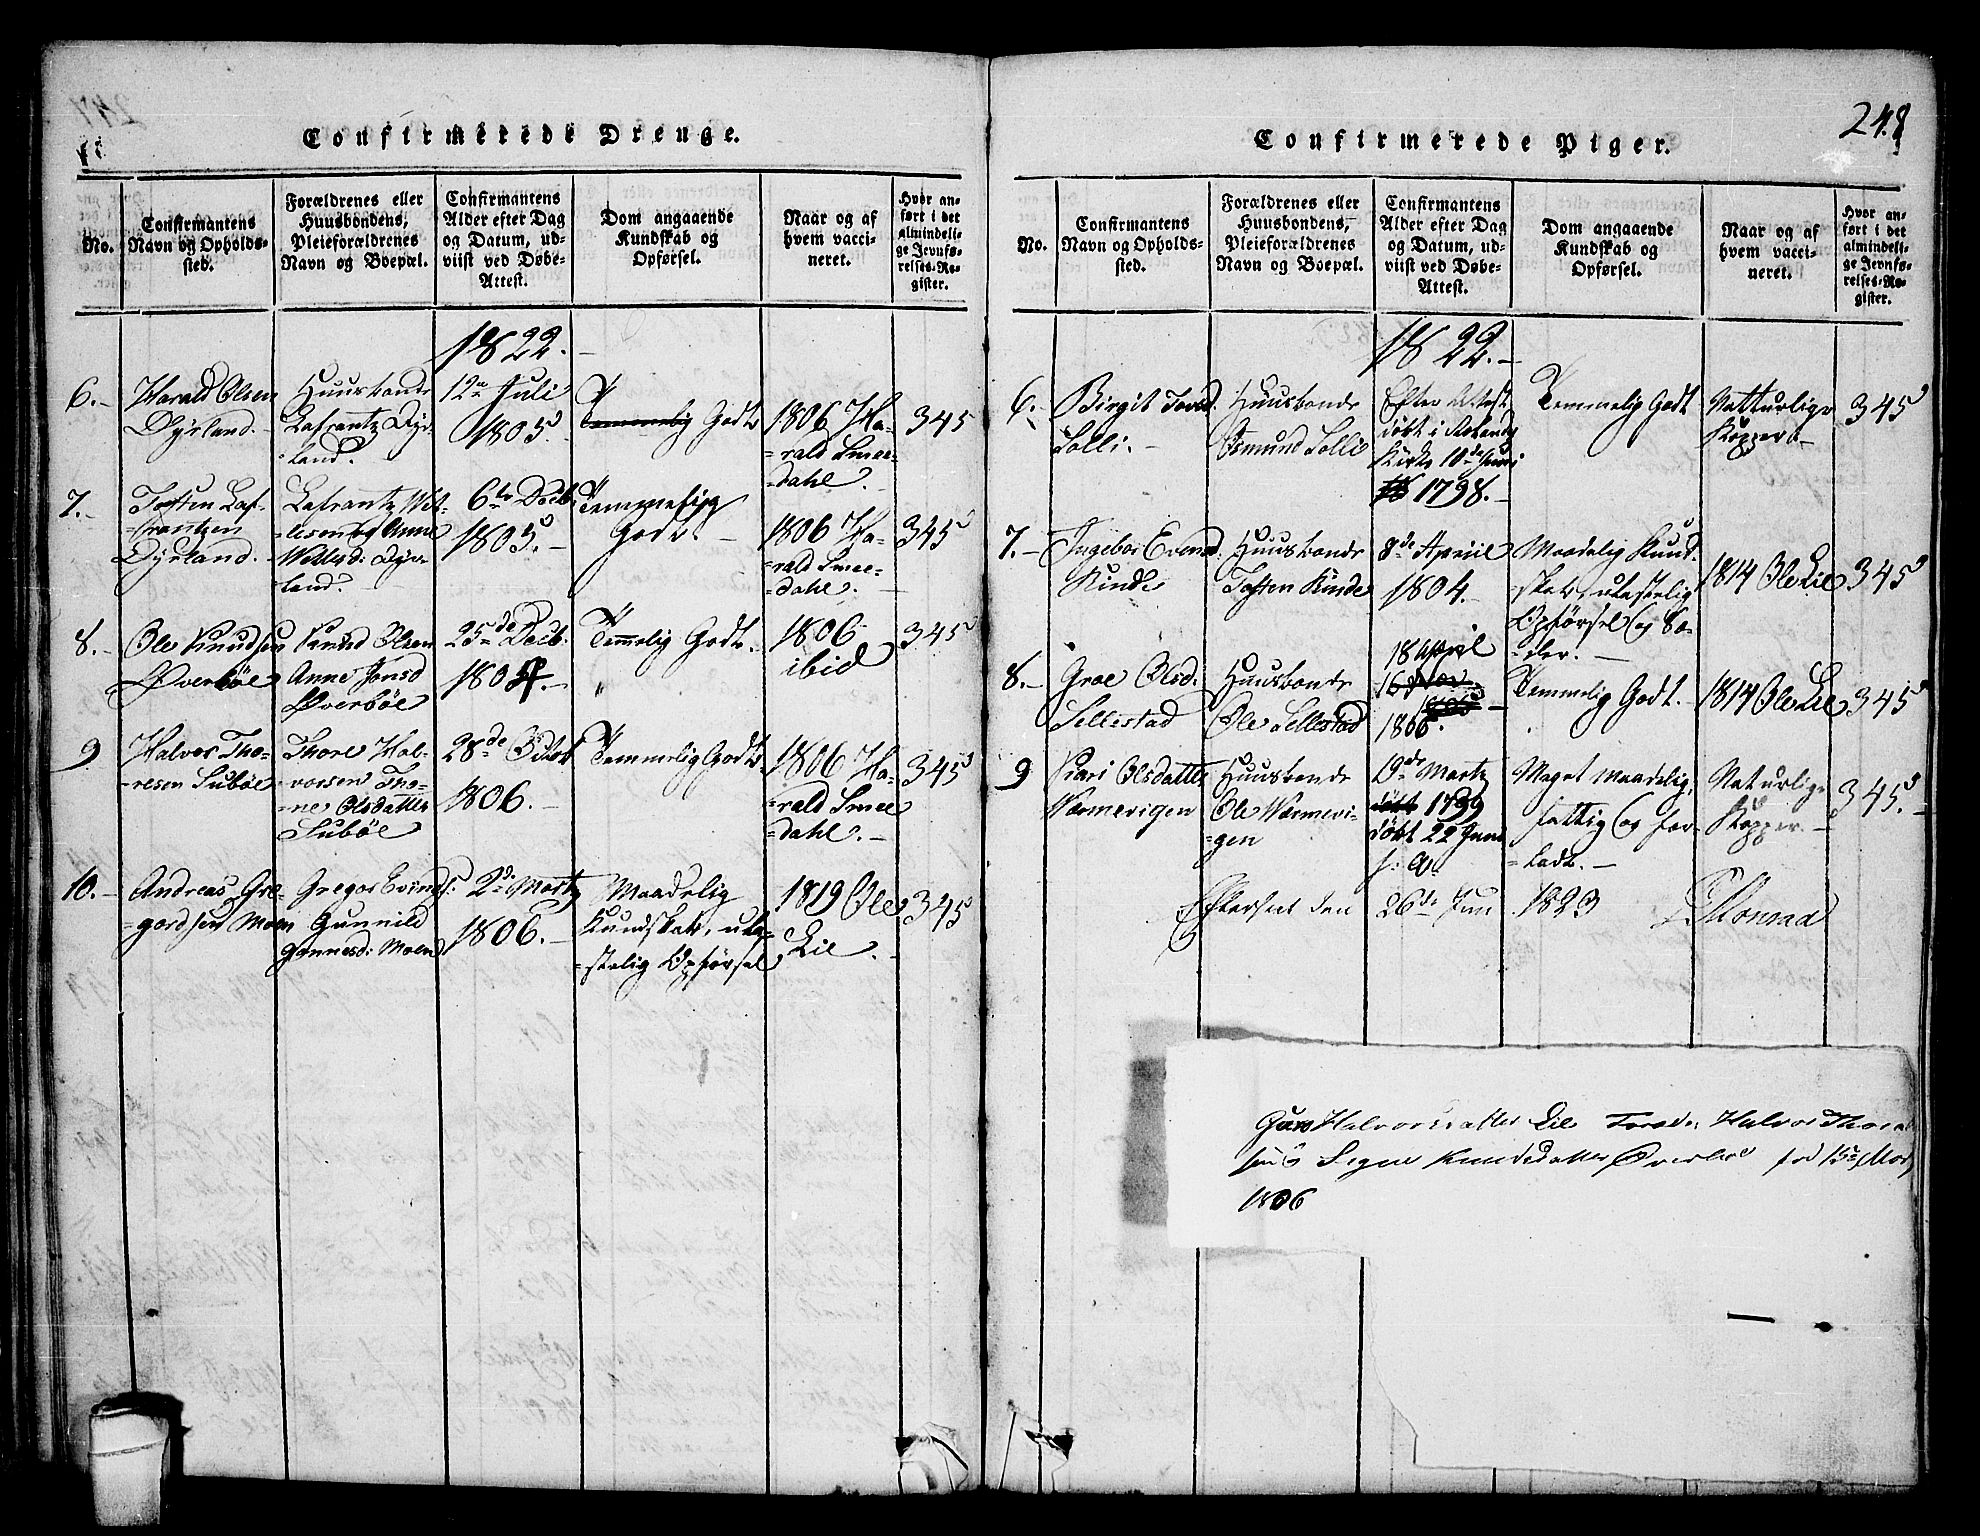 Confirmerede Drenge.
No.
Confirmantens
Navn og Opholds-
sted.
Forældrenes eller
Huusbondens,
Pleieforældrenes
Navn og Boepæl.
Confirmantens
Alder efter Dag
og Datum, ud-
viist ved Døbe-
Attest.
Dom angaaende
Kundskab og
Opførsel.
Naar og af
hvem vacci-
neret.
Hvor an-
ført i det
almindeli-
ge Jevnfø-
relses-Re-
gister.
1822.-
6.-
Harald Olsen
Dyrland.
Huusbonde
Lafrantz Dyr-
land.
12te Julii
1805.
Temmelig Godt
1806 Ha-
=rald Smee-
=dahl.
345
7.-
Tosten Laf-
=frantzen
Dyrland.
Lafrantz
og Anne
Dyr-
land.
6te Decb.
1805.-
Temmelig
Godt.
1806 Ha-
=rald Smee-
=dahl.
345
8.-
Ole Knudsen
Øverbøe
Knud Olsen
Anne Jonsd
Øverbøe
25de Decb.
1804.-
Temmelig Godt.
1806
ibid
345
9
Halvor Tho-
=resen Subøe
Thore Hal-
vorsen Tho-
=ne Olsdatter
Subøe
28de
1806.-
Temmelig Godt.
1806 Ha-
=rald Smee
=dahl.-
345
10.-
Andreas Gre-
=gorsen Moen
Gregor Evinds:
Gunnild
Moen
2de Martz
1806.-
Maadelig
Kundskab, ula-
=stelig Opførsel
1819 Ole
Lie.
345
248
Confirmerede Piger.
No.
Confirmantens
Navn og Opholds-
sted.
Forældrenes eller
Huusbondens,
Pleieforældrenes
Navn og Boepæl.
Confirmantens
Alder efter Dag
og Datum, ud-
viist ved Døbe-
Attest.
Dom angaaende
Kundskab og
Opførsel.
Naar og af
hvem vacci-
neret.
Hvor an-
ført i det
almindeli-
ge Jevnfø-
relses-Re-
gister.
1822.-
6.-
Birgit
Solli.-
Huusbonde
Osmund Solli
Efter Attest
døbt i
Kirke 10de Juni
1798.-
Temmelig Godt
Natturlige
Kopper
345
7.-
Ingebor Evensd.
Kinde
Huusbonde
Tosten Kinde
8de Apriil
1804.
Maadelig Kund-
=skab, ulastelig
Opførsel og Sæ-
=der.-
1814 Ole Lie
345
8.-
Groe Olsd.
Sellestad
Huusbonde
Ole Sellestad
18 April
1806.
Temmelig Godt.
1814 Ole Lie
345
9
Kari Olsdatter
Warmevigen
Huusbonde
Ole Warmevi-
=gen
19de Martz
1799
døbt 22 Juni
s: A:
Meget maadelig,
fattig og for-
=ladt.-
Naturlige
Kopper.
345.
Efterseet den 26de Jun 1823 Monrad
Halvorsdatter Lie Halvor Thore
Signe Knudsdatter Øverbøe fød 15de
1806